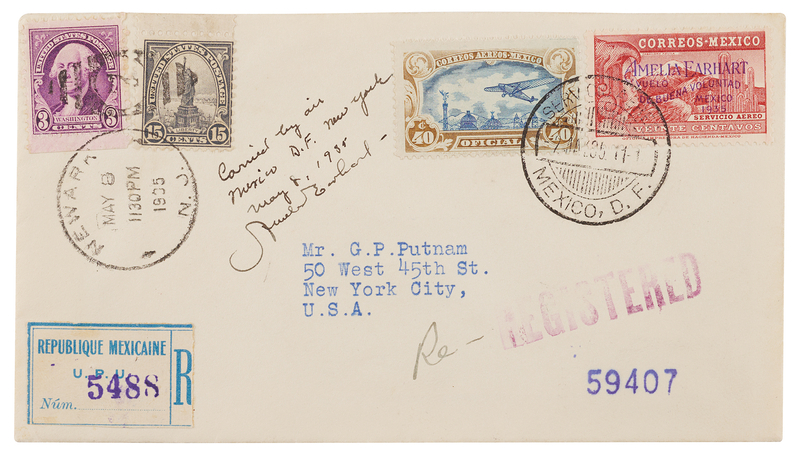 UNITED STATES POSTAGE
3 3
WASHINGTON
CENTS
UNITED STATES POSTAGE
15 15
CENTS
NEWARK N.J.
MAY 8
1130PM
1935
Carried by air
Mexico D.F. New York
May 8, 1935 -
Amelia Earhart -
CORREOS AEREOS-MEXICO
40 40
OFICIAL
CORREOS-MEXICO
AMELIA EARHART
VUELO
DE BUENA VOLUNTAD
MEXICO
1935
SERVICIO AEREO
VEINTE CENTAVOS
MEXICO, D. F.
Mr. G.P.Putnam
50 West 45th St.
New York City,
U.S.A.
Re- REGISTERED
59407
REPUBLIQUE MEXICAINE
U.P.U.
R
5488
Núm.